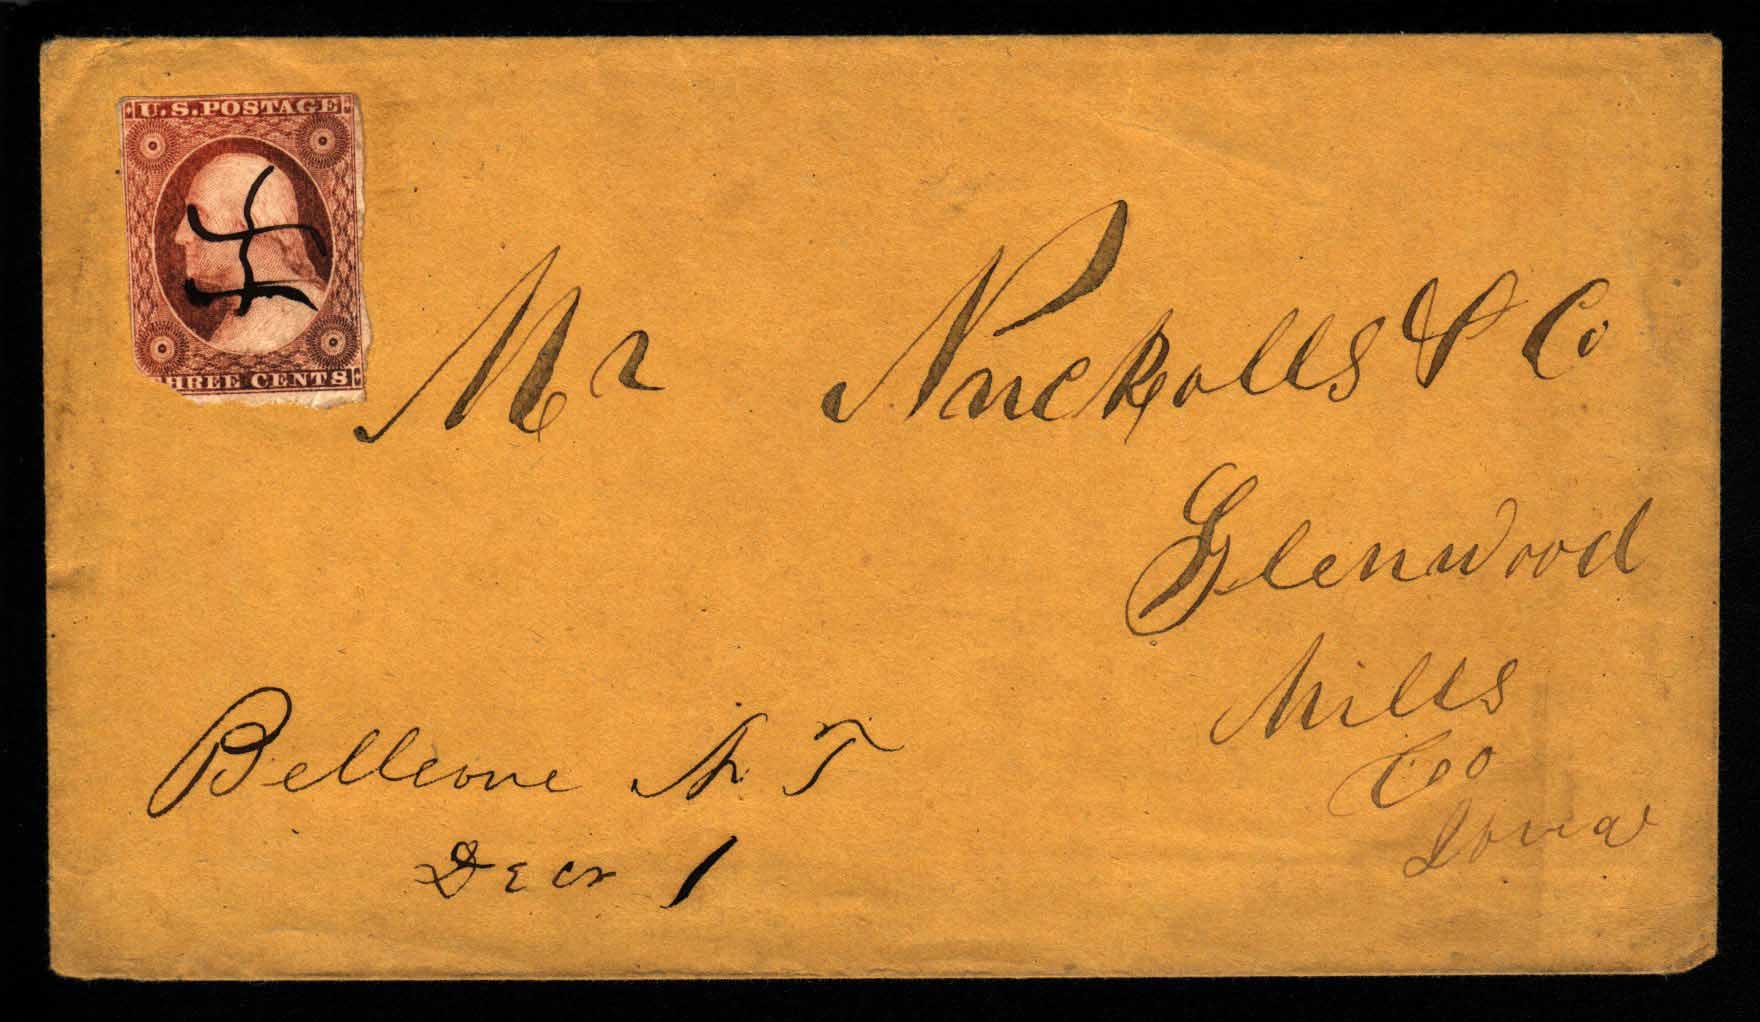 U.S. POSTAGE
THREE CENTS
Mr Nuckolls & Co
Glenwood
Mills
Co
Iowa
Bellevue N. T
Decr 1